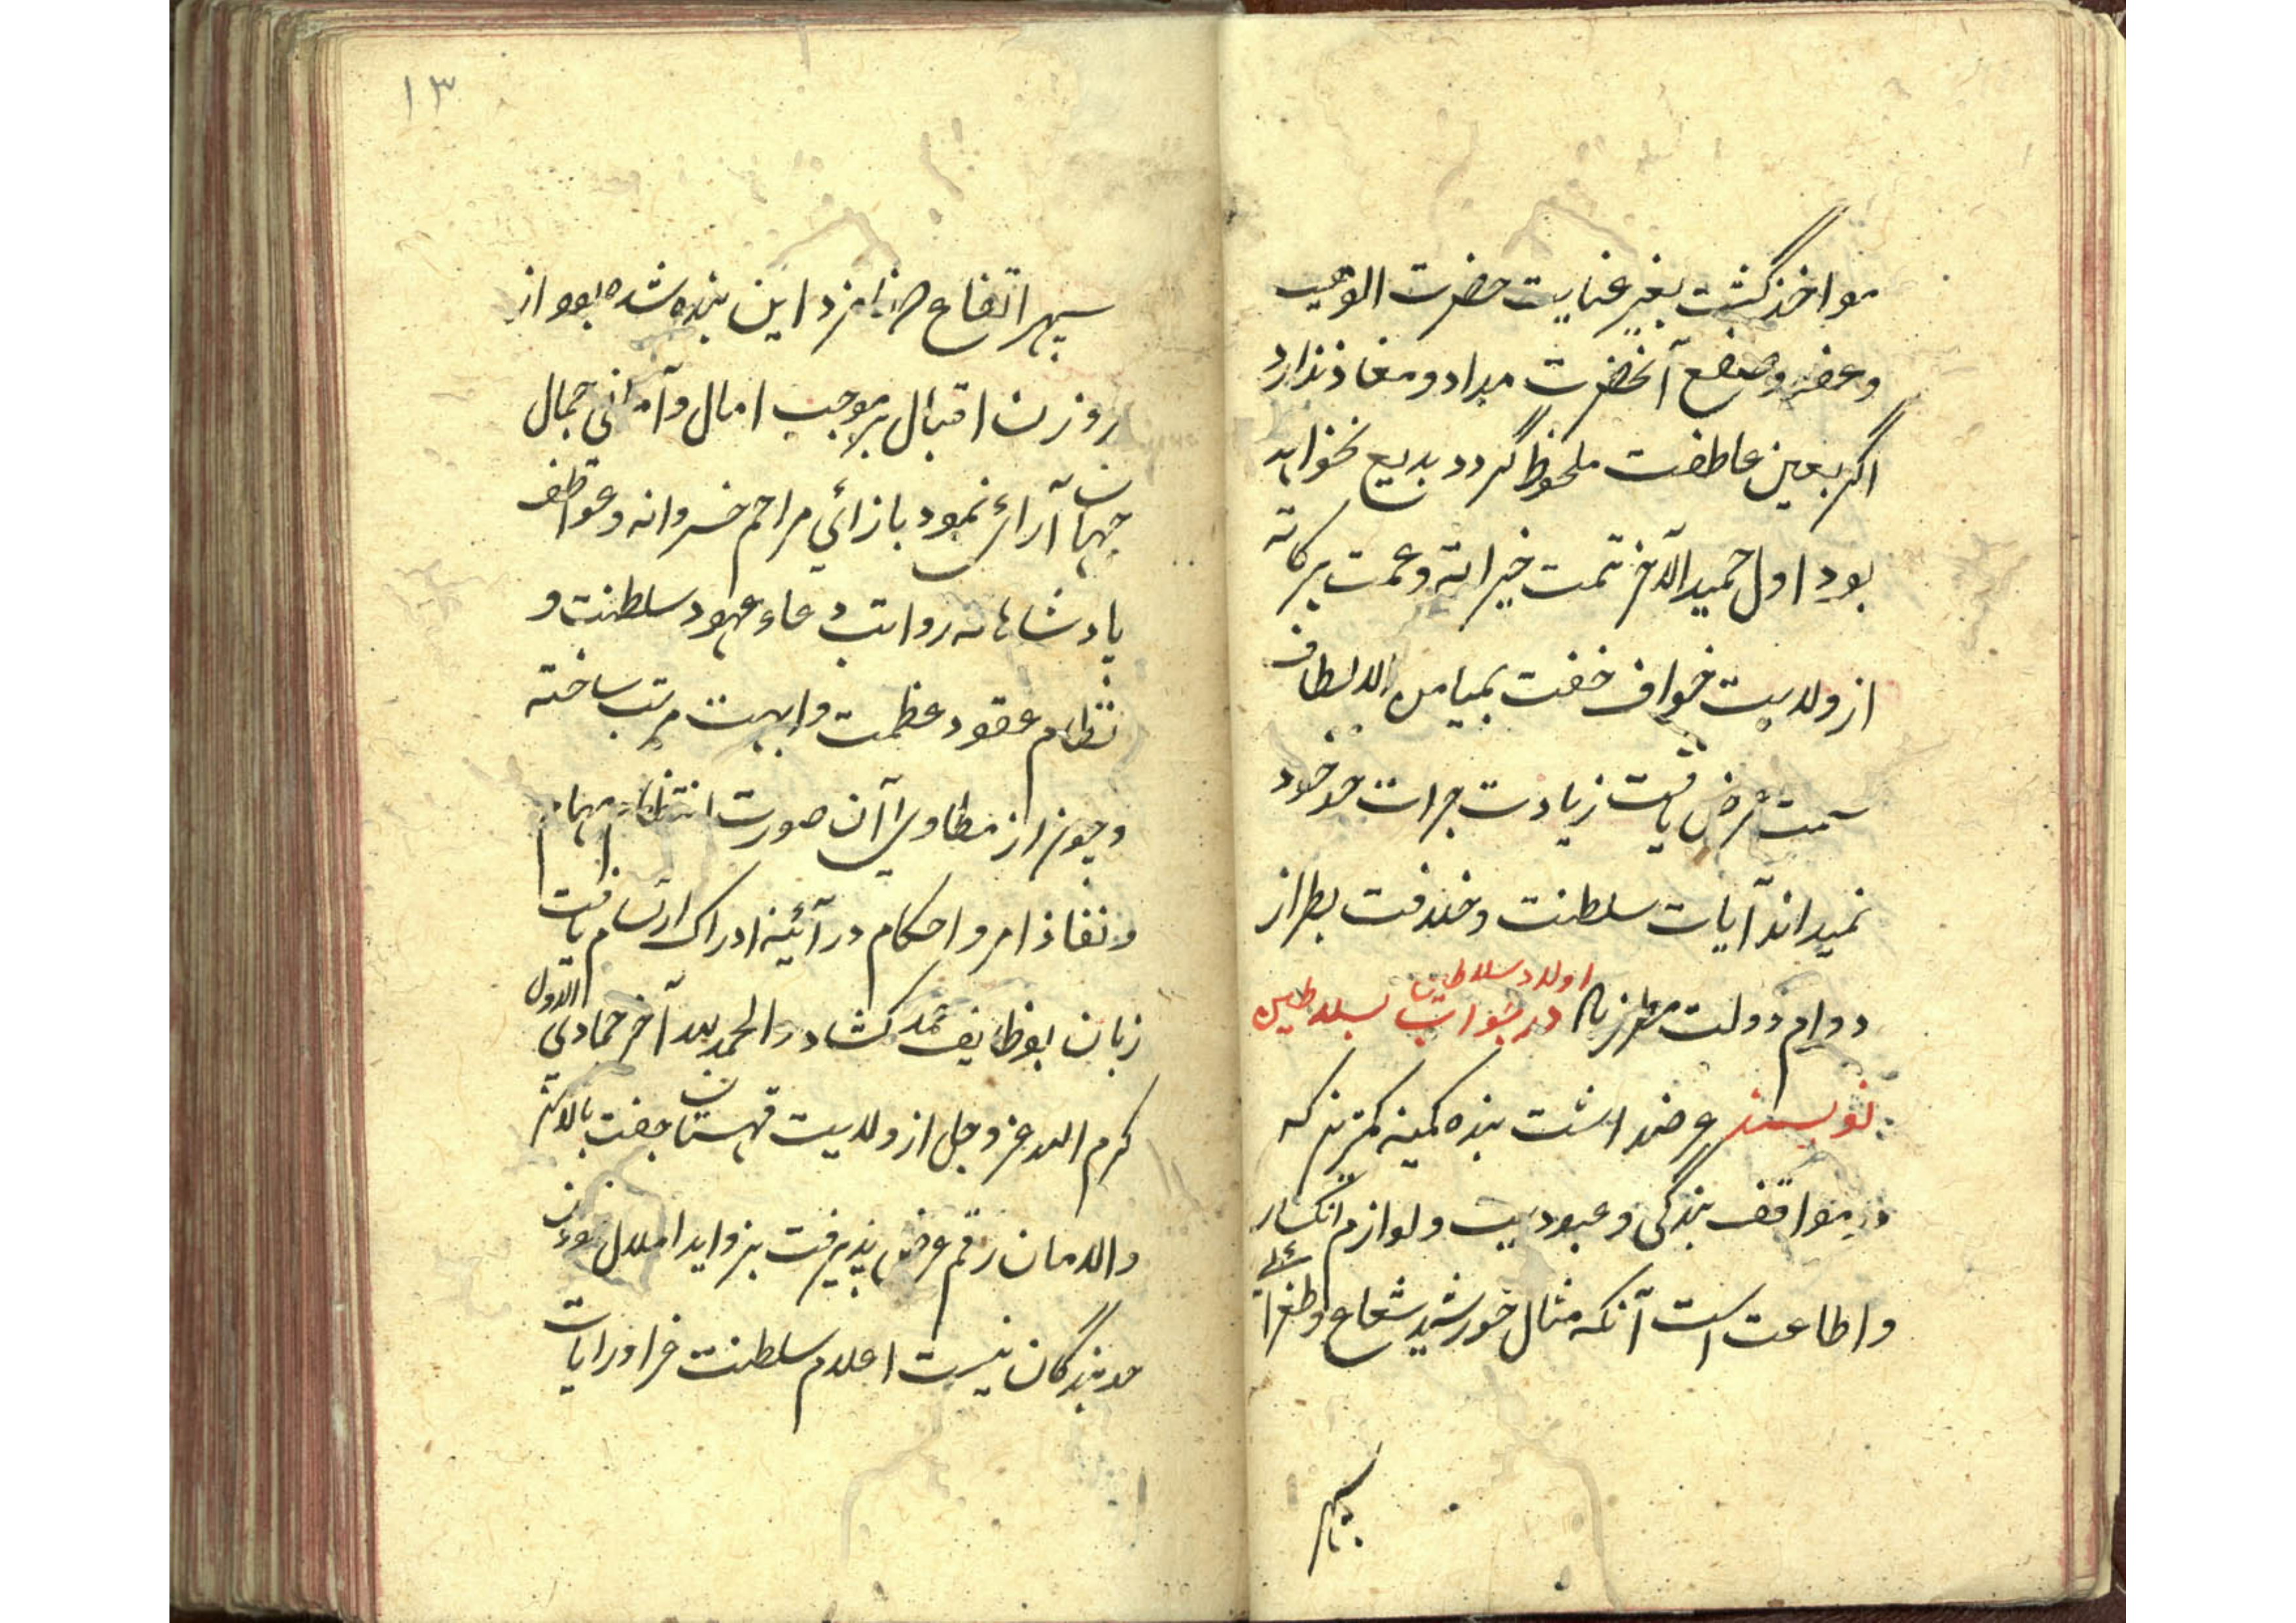 مواخذ گشت بغیر عنایت حضرت الوهیت
و عفو و صفح آنحضرت مبداد و معاذ ندارد
اگر بعین عاطفت ملحوظ گردد بدیع نخواهد
بود اول حمید الآخر تمت خیراته وعمت برکاته
از ولایت خواف خفت بمیامن الالطاف
سمت عرض یافت زیادت جرات حد خود
نمیداند آیات سلطنت و خلافت بطراز
دوام دولت مطرز باد
اولاد سلاطین در جواب سلاطین
نویسند عرضداشت بنده کمینه کمترینه که
در مواقف بندگی و عبودیت و لوازم انکسار
واطاعت است آنکه مثال خورشید شعاع وطغرائی
سپهر
۱۳
سپهر ارتفاع نامزد این بنده شده بود از
روزن اقبال بر موجب امال و آمانی جمال
جهان آرائی نمود بازائی مراحم خسروانه وعواطف
پادشاهانه رواتب دعاء عهود سلطنت و
نظام عقود عظمت وابهت مرتب ساخته
و چون از مطاوی آن صورت انتظام مهام
و نفاذ امر و احکام در آئینه ادراک ارتسام یافت
زبان بوظایف حمد کشاد و الحمد لله آخر جمادی الاول
کرم الله عز وجل از ولایت قهستان حفت بالامن
والامان رقم عرض پذیرفت بزواید املال چون
حد بندگان نیست اعلام سلطنت فراورایات